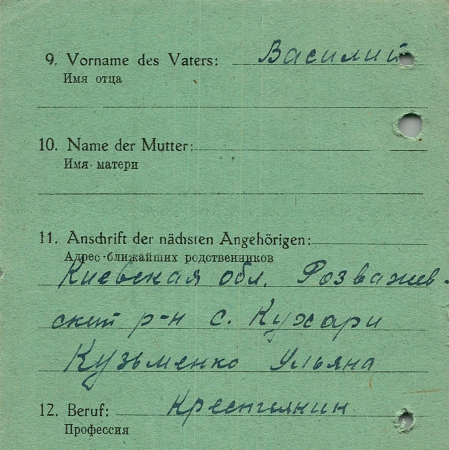 9. Vorname des Vaters: Василий
Имя отца
10. Name der Mutter:
Имя матери
11. Anschrift der nächsten Angehörigen:
Адрес ближайших родственников
Киевская обл. Розважев-
ский р-н с. Кухари
Кузьменко Ульяна
12. Beruf: Крестьянин
Профессия